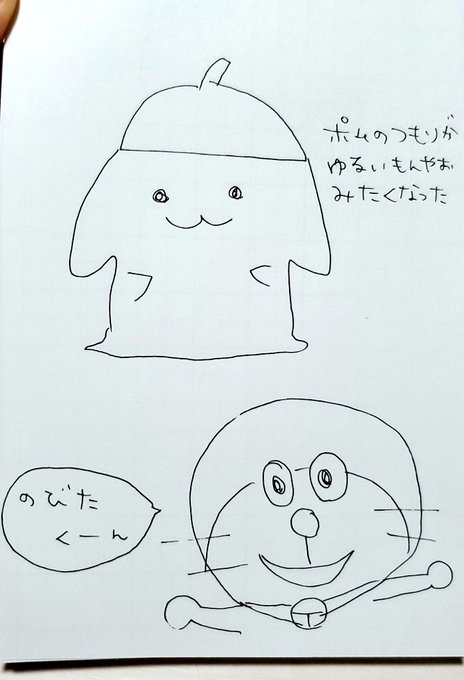 ポムのつもりが
ゆるいもんやお
みたくなった
のびた
くーん